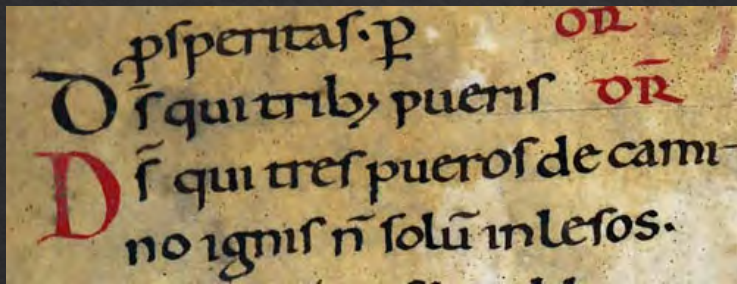 ꝓſperitaſ. p̄ OR̄
Dſ̄ qui trib; pueriſ OR̄
Dſ̄ qui treſ pueroſ de cami-
no igniſ n̄ ſolū inleſos.